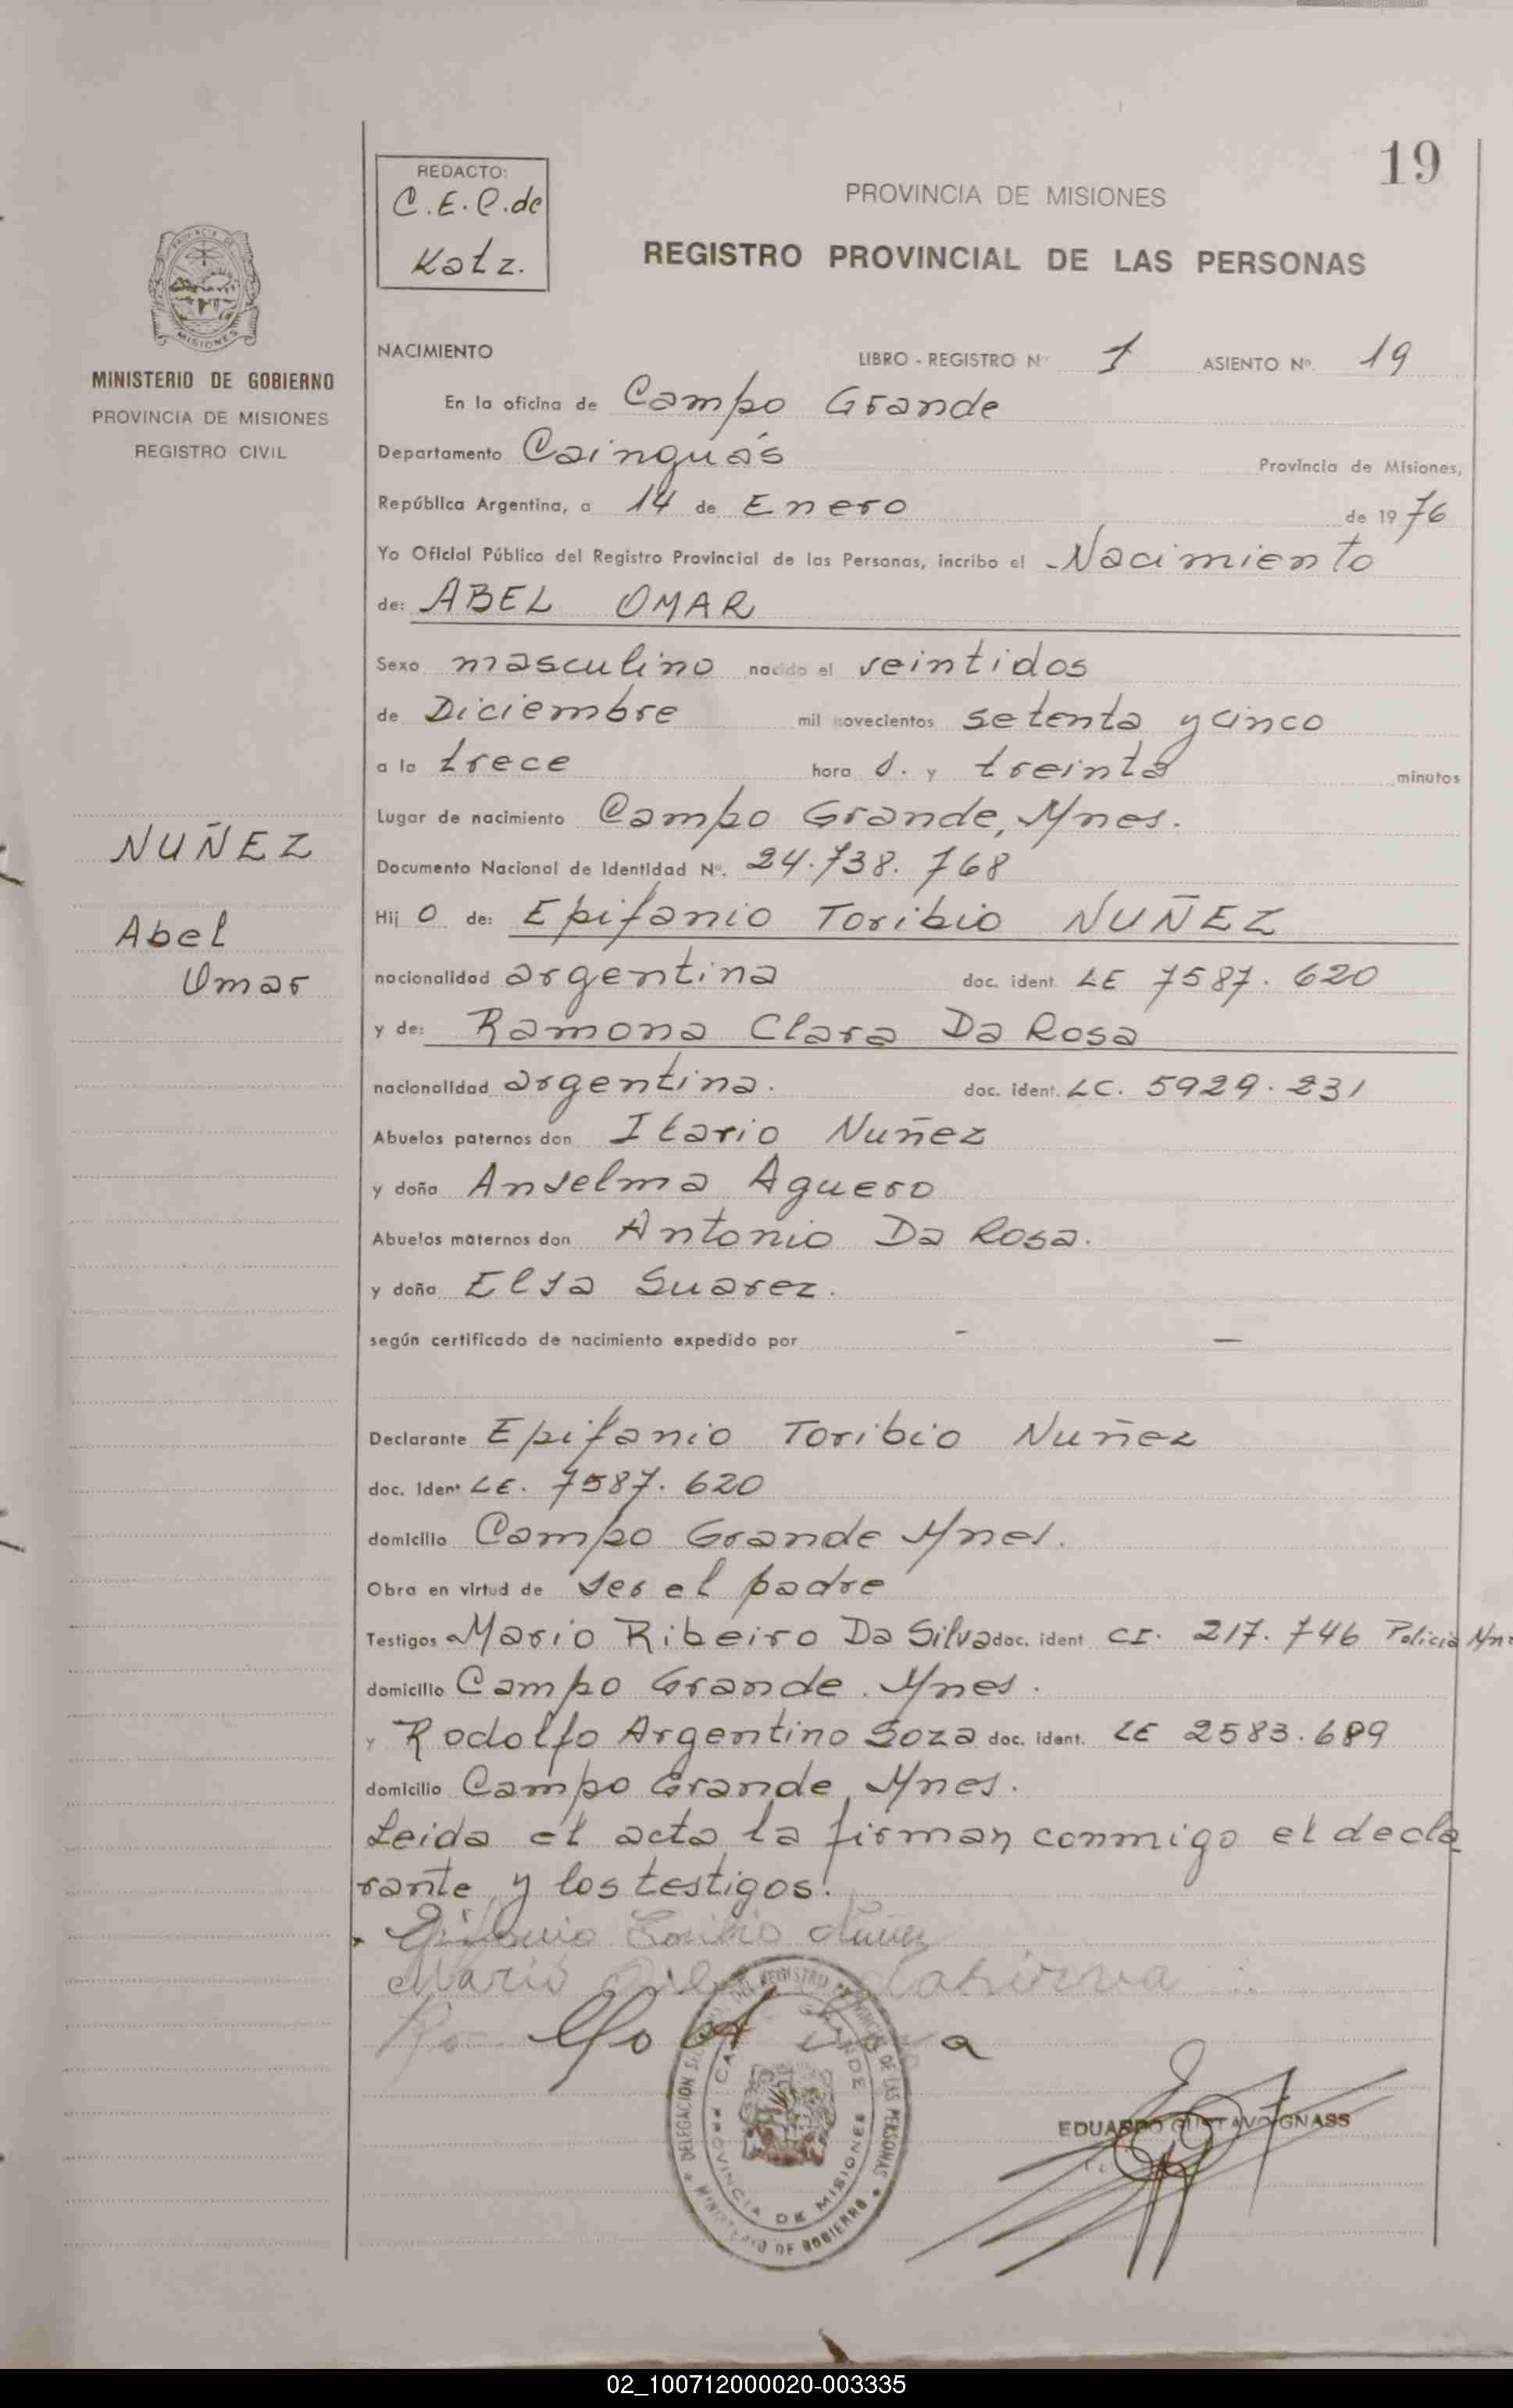 19
REDACTO:
C.E.P.de
Katz.
PROVINCIA DE MISIONES
REGISTRO PROVINCIAL DE LAS PERSONAS
MISIONES
MINISTERIO DE GOBIERNO
PROVINCIA DE MISIONES
REGISTRO CIVIL
NACIMIENTO LIBRO - REGISTRO Nº 1 ASIENTO Nº 19
En la oficina de Campo Grande
Departamento Cainguás Provincia de Misiones,
República Argentina, a 14 de Enero de 1976
Yo Oficial Público del Registro Provincial de las Personas, incribo el Nacimiento
de: ABEL OMAR
Sexo masculino nacido el veintidos
de Diciembre mil novecientos setenta y cinco
a la trece hora s. y treinta minutos
Lugar de nacimiento Campo Grande, Mnes.
Documento Nacional de Identidad Nº. 24.738.768
NUÑEZ
Abel
Omar
Hij o de: Epifanio Toribio NUÑEZ
nacionalidad argentina doc. ident. LE 7587.620
y de: Ramona Clara Da Rosa
nacionalidad argentina. doc. ident. LC. 5929.231
Abuelos paternos don Ilario Nuñez
y doña Anselma Aguero
Abuelos maternos don Antonio Da Rosa.
y doña Elsa Suarez.
según certificado de nacimiento expedido por - -
Declarante Epifanio Toribio Nuñez
doc. Ident LE. 7587.620
domicilio Campo Grande Mnes.
Obra en virtud de ser el padre
Testigos Mario Ribeiro Da Silva doc. ident CI. 217.746 Policia Mn
domicilio Campo Grande. Mnes.
y Rodolfo Argentino Soza doc. ident. LE 2583.689
domicilio Campo Grande, Mnes.
Leida el acta, la firman conmigo el decla
rante, y los testigos.
Epifanio Toribio Nuñez
Mario
DELEGACION DEL REGISTRO PROVINCIAL DE LAS PERSONAS
MINISTERIO DE GOBIERNO
CAMPO GRANDE
PROVINCIA DE MISIONES
EDUARDO GUSTAVO GNASS
02_100712000020-003335